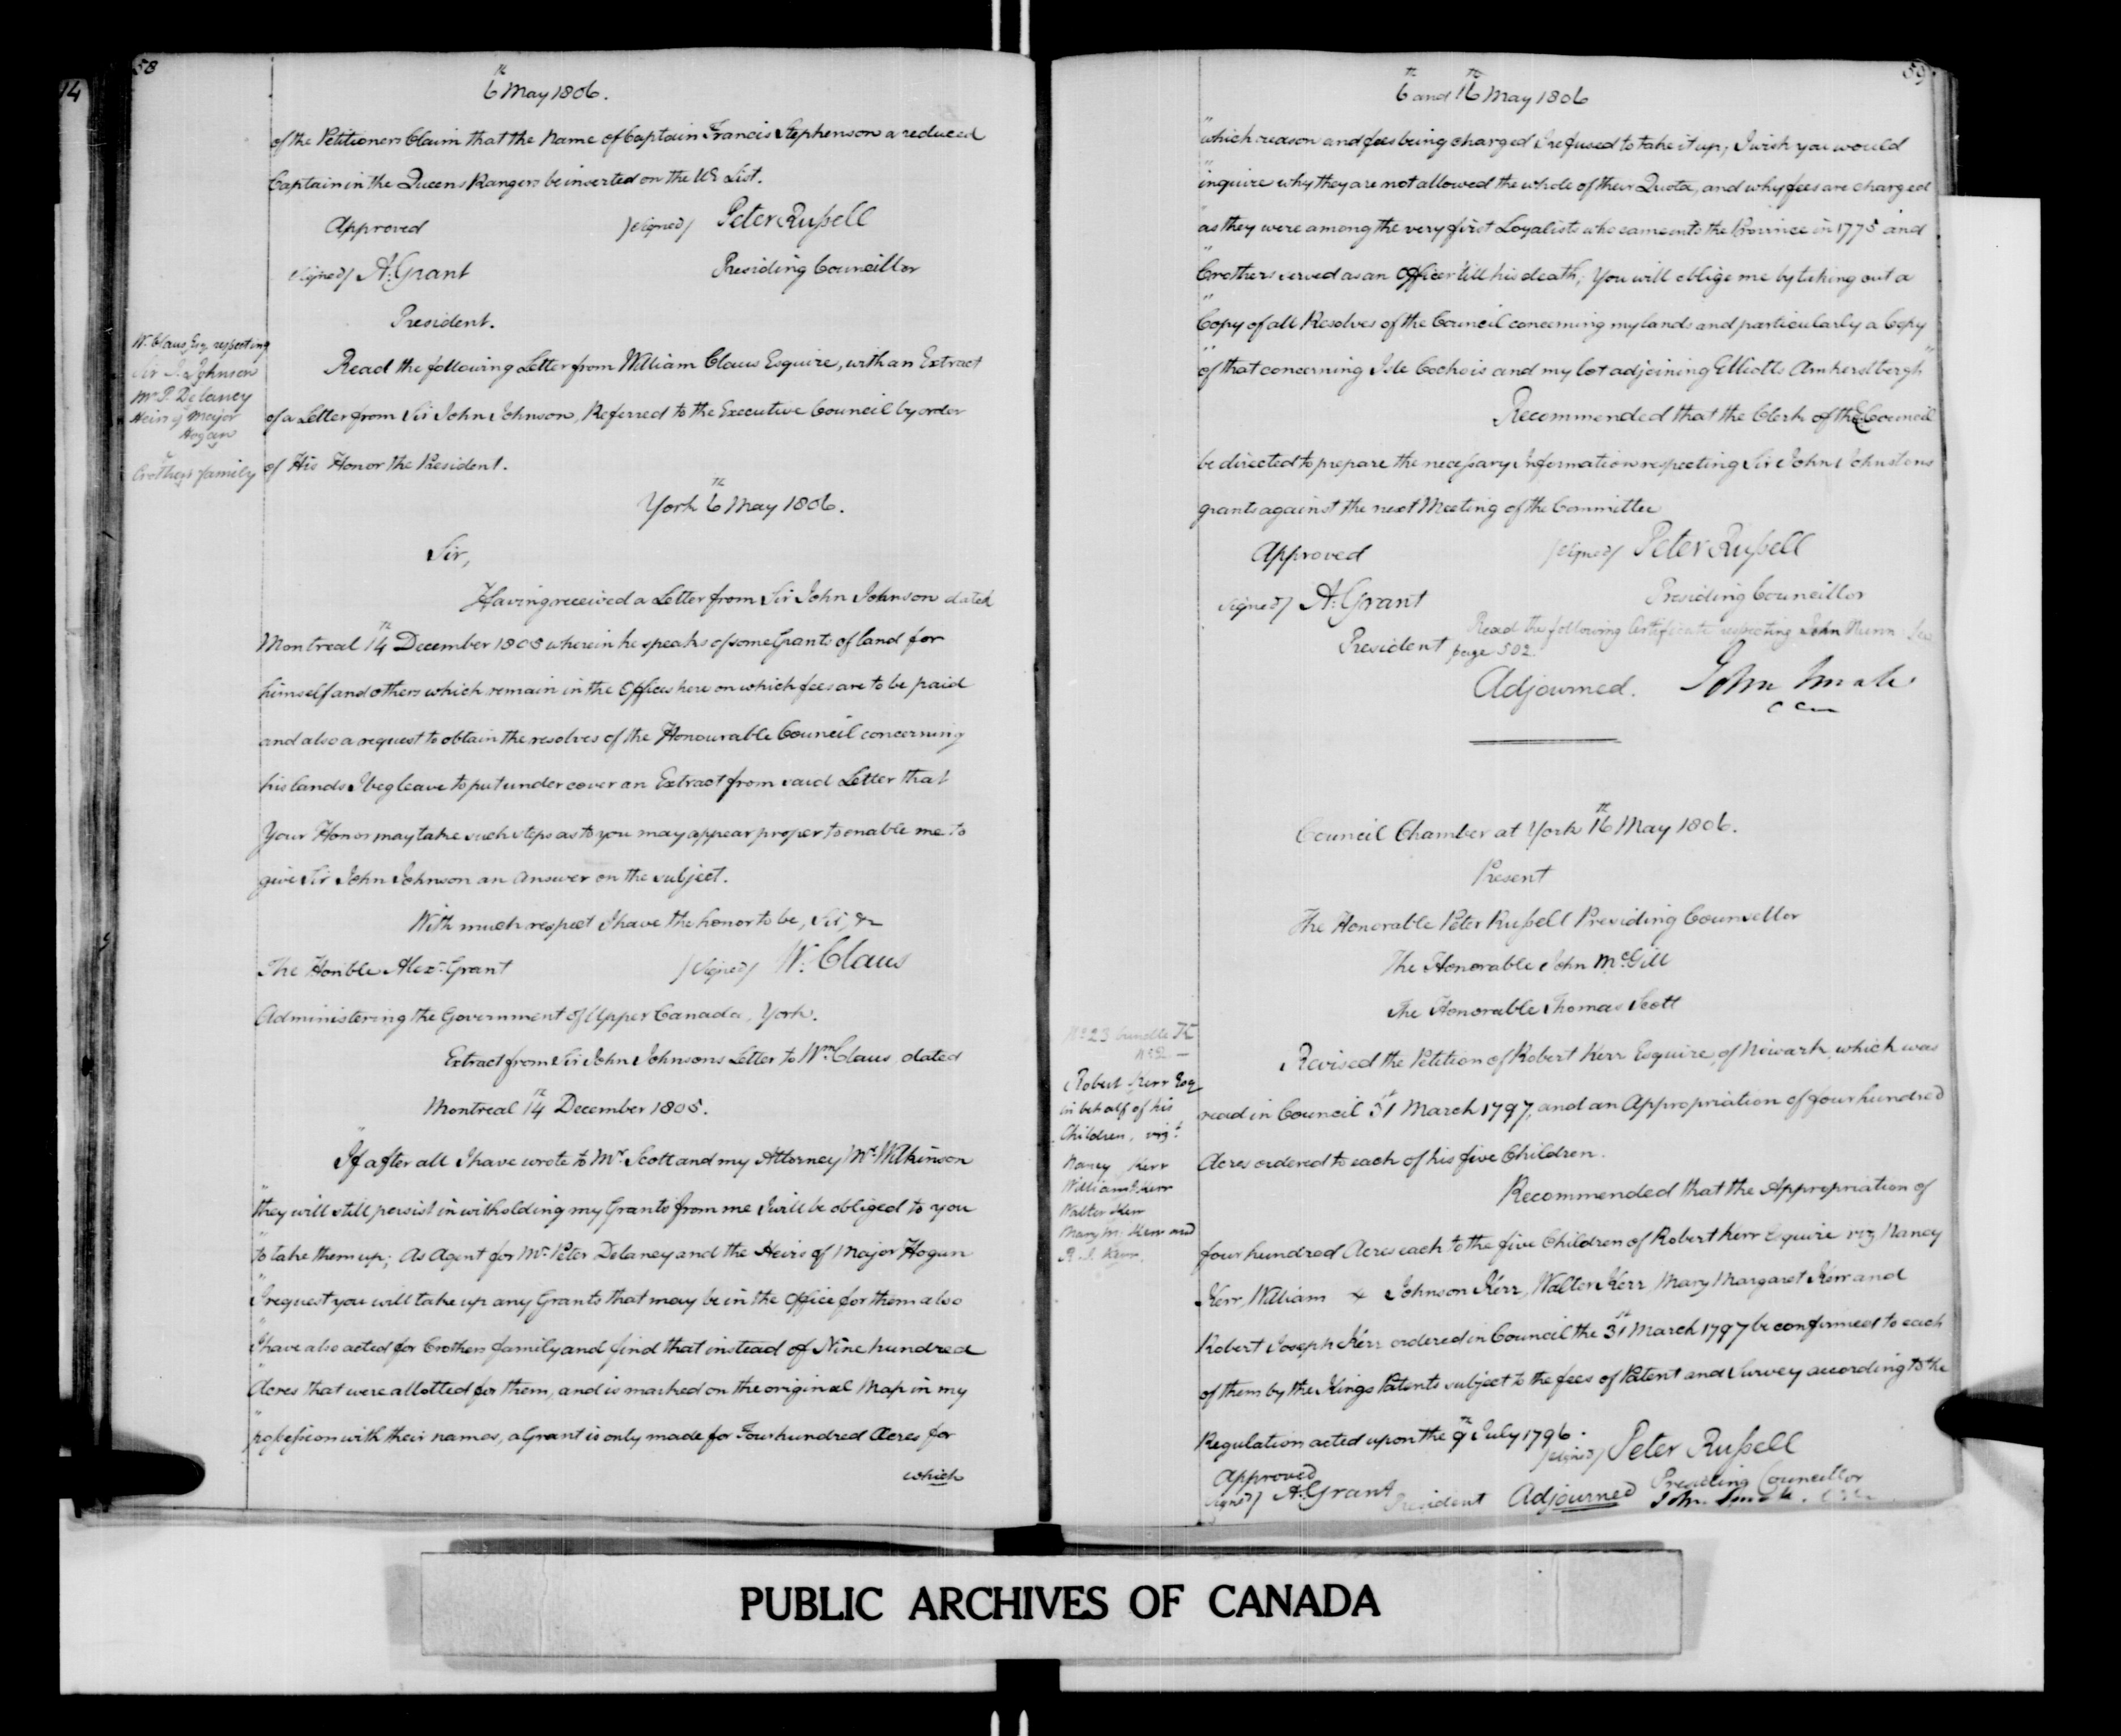 58
6th May 1806.
of the Petitioners Claim that the Name of Captain Francis Stephenson a reduced
Captain in the Queens Rangers be inserted on the UE List.
Approved (signed) Peter Russell
signed) A. Grant Presiding Councillor
President.
Wm Claus Esq. respecting
Sir J. Johnson
Mr P. Delancy
Heirs of Major
Hogan
Crothers family
Read the following Letter from William Claus Esquire, with an Extract
of a Letter from Sir John Johnson, Referred to the Executive Council by order
of His Honor the President.
York 6th May 1806.
Sir,
Having received a Letter from Sir John Johnson dated
Montreal 14th December 1805 wherein he speaks of some Grants of land for
himself and others which remain in the Offices here on which fees are to be paid
and also a request to obtain the resolves of the Honourable Council concerning
his lands I beg leave to put under cover an Extract from said Letter that
Your Honor may take such steps as to you may appear proper to enable me to
give Sir John Johnson an answer on the subject.
With much respect I have the honor to be, Sir, &c
The Honble Alexr Grant (signed) W. Claus
Administering the Government of Upper Canada, York.
Extract from Sir John Johnsons Letter to Wm Claus dated
Montreal 14th December 1805.
"If after all I have wrote to Mr Scott and my Attorney Mr Wilkinson
"they will still persist in witholding my Grants from me I will be obliged to you
"to take them up; As Agent for Mr Peter Delancy and the Heirs of Major Hogan
"I request you will take up any Grants that may be in the Office for them also
"I have also acted for Crothers family and find that instead of Nine hundred
"Acres that were allotted for them, and is marked on the original Map in my
"possession with their names, a Grant is only made for Four hundred Acres for
which
59
6th and 16th May 1806
"which reason and fees being charged I refused to take it up, I wish you would
"inquire why they are not allowed the whole of their Quota, and why fees are charged
"as they were among the very first Loyalists who came into the Province in 1775 and
"Crothers served as an Officer till his death; You will oblige me by taking out a
"Copy of all Resolves of the Council concerning my lands and particularly a Copy
"of that concerning Isle Cochois and my lot adjoining Elliotts Amherstbergh"
Recommended that the Clerk of the E. Council
be directed to prepare the necessary Information respecting Sir John Johnstons
grants against the next Meeting of the Committee
Approved (signed) Peter Russell
signed) A. Grant Presiding Councillor
President Read the following Certificate respecting John Nunn See
page 502
Adjourned. John Small
C Cn
Council Chamber at York 16th May 1806.
Present
The Honorable Peter Russell Presiding Counsellor
The Honorable John McGill
The Honorable Thomas Scott
No 23 bundle K
No 2 —
Robert Kerr Esq
in behalf of his
Children, vizt
Nancy Kerr
William J Kerr
Walter Kerr
Mary M. Kerr and
R. J. Kerr.
Revised the Petition of Robert Kerr Esquire, of Newark, which was
read in Council 31st March 1797, and an Appropriation of four hundred
Acres ordered to each of his five Children.
Recommended that the Appropriation of
four hundred Acres each to the five Children of Robert Kerr Esquire viz Nancy
Kerr, William Johnson Kerr, Walter Kerr, Mary Margaret Kerr and
Robert Joseph Kerr ordered in Council the 31st March 1797 be confirmed to each
of them by the Kings Patents subject to the fees of Patent and Survey according to the
Regulation acted upon the 9th July 1796.
(signed) Peter Russell
Approved Presiding Councillor
signed) A. Grant President Adjourned John Small.
PUBLIC ARCHIVES OF CANADA